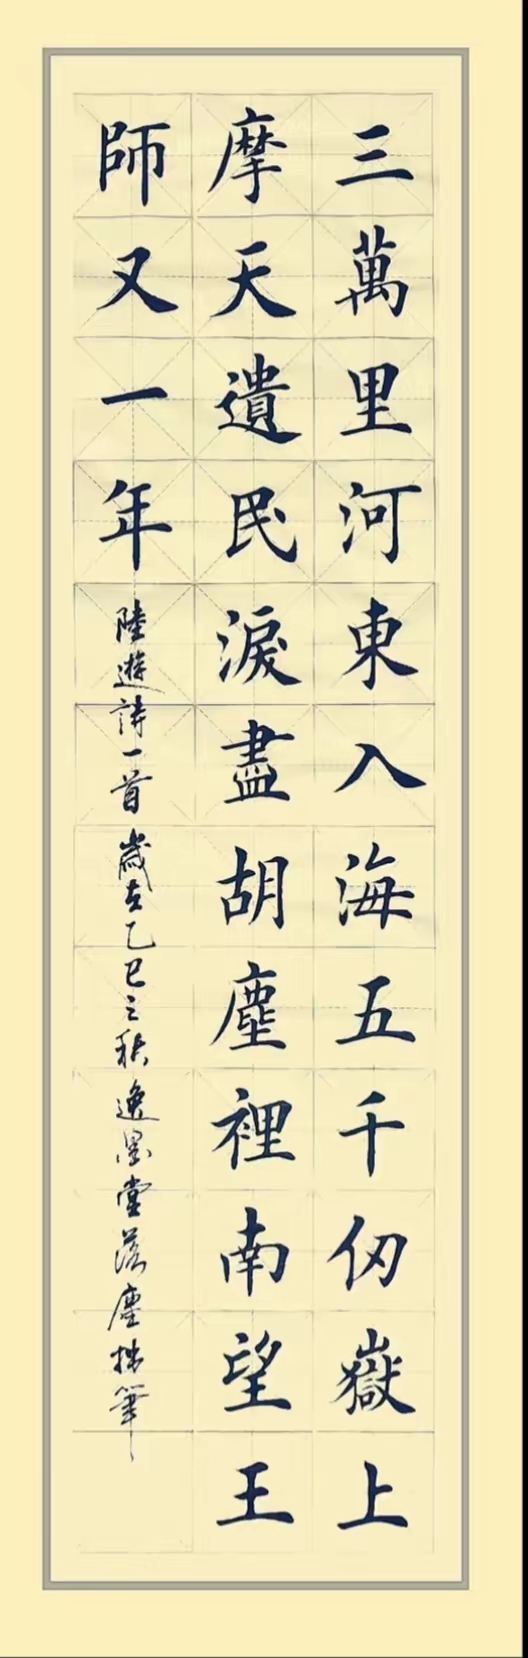 三萬里河東入海五千仞嶽上
摩天遺民淚盡胡塵裡南望王
師又一年
陸遊詩一首 歲在乙巳之秋 逸墨堂落塵拙筆